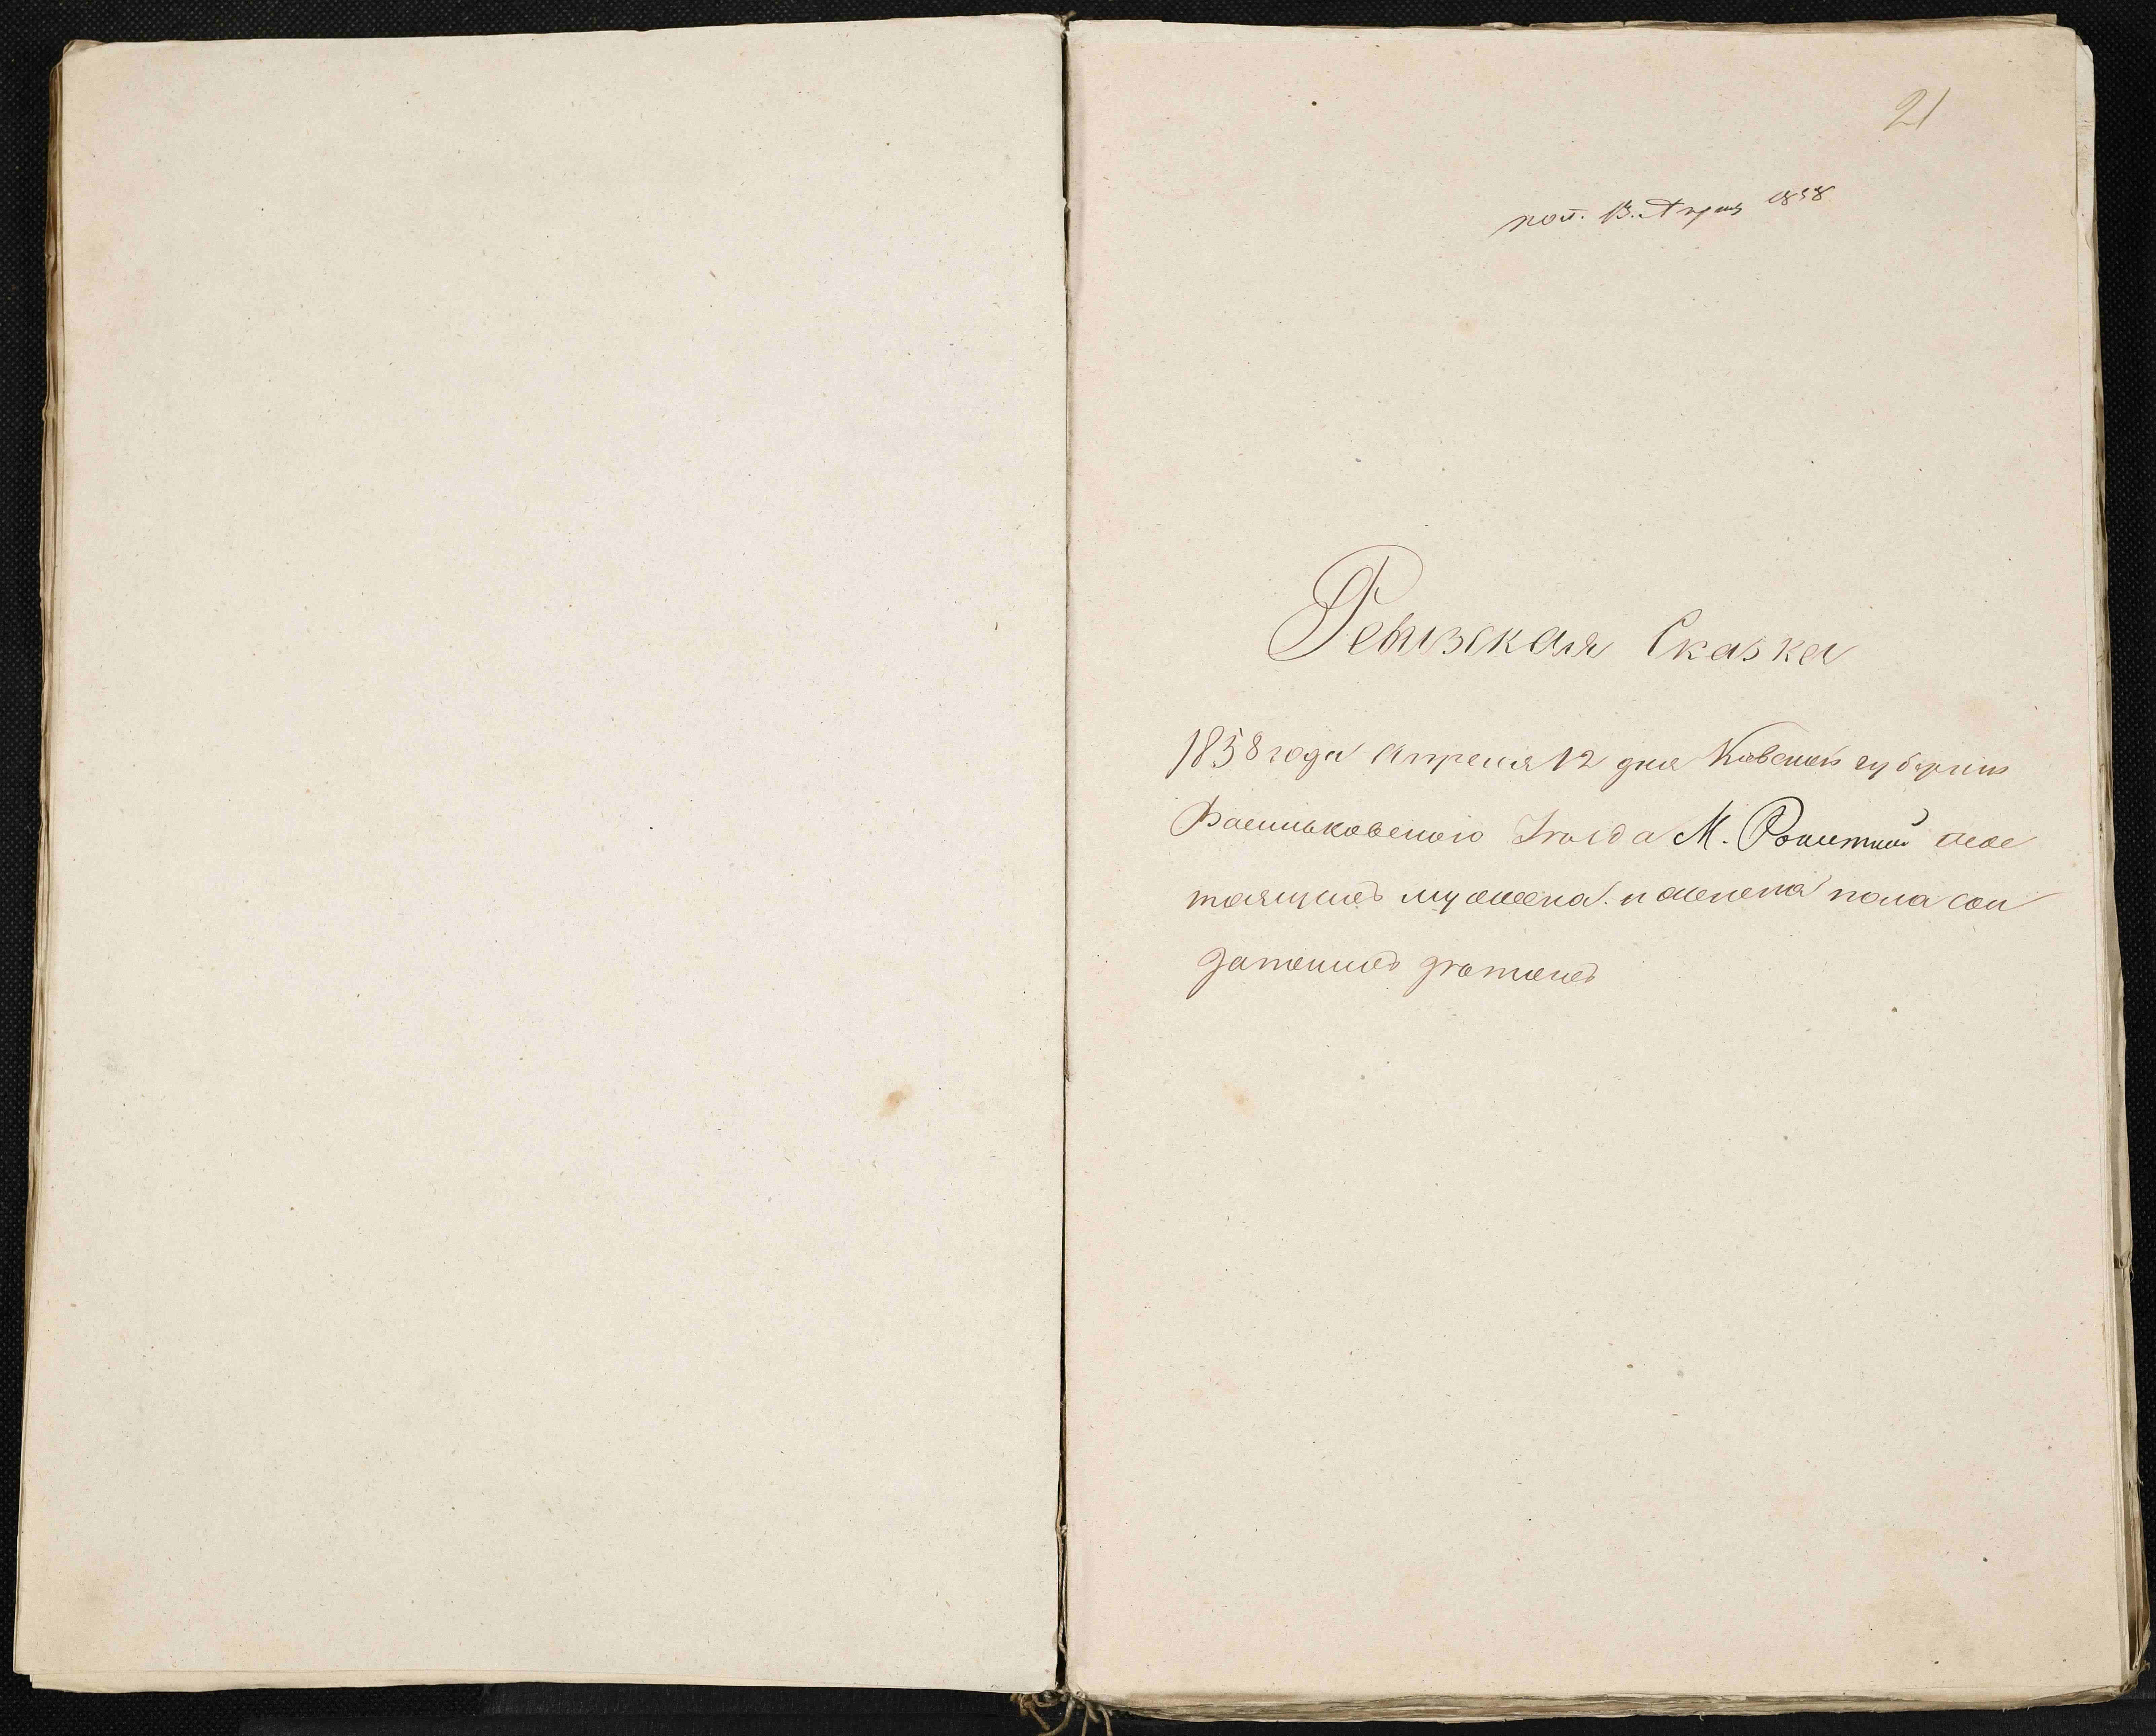 21
пол. 13. Апреля 1858
Ревизская Сказка
1858 года Апреля 12 дня Киевской губернии
Васильковского Уезда М. Рокитной сос
тоящих мужеска. и женска пола сол
датских детей